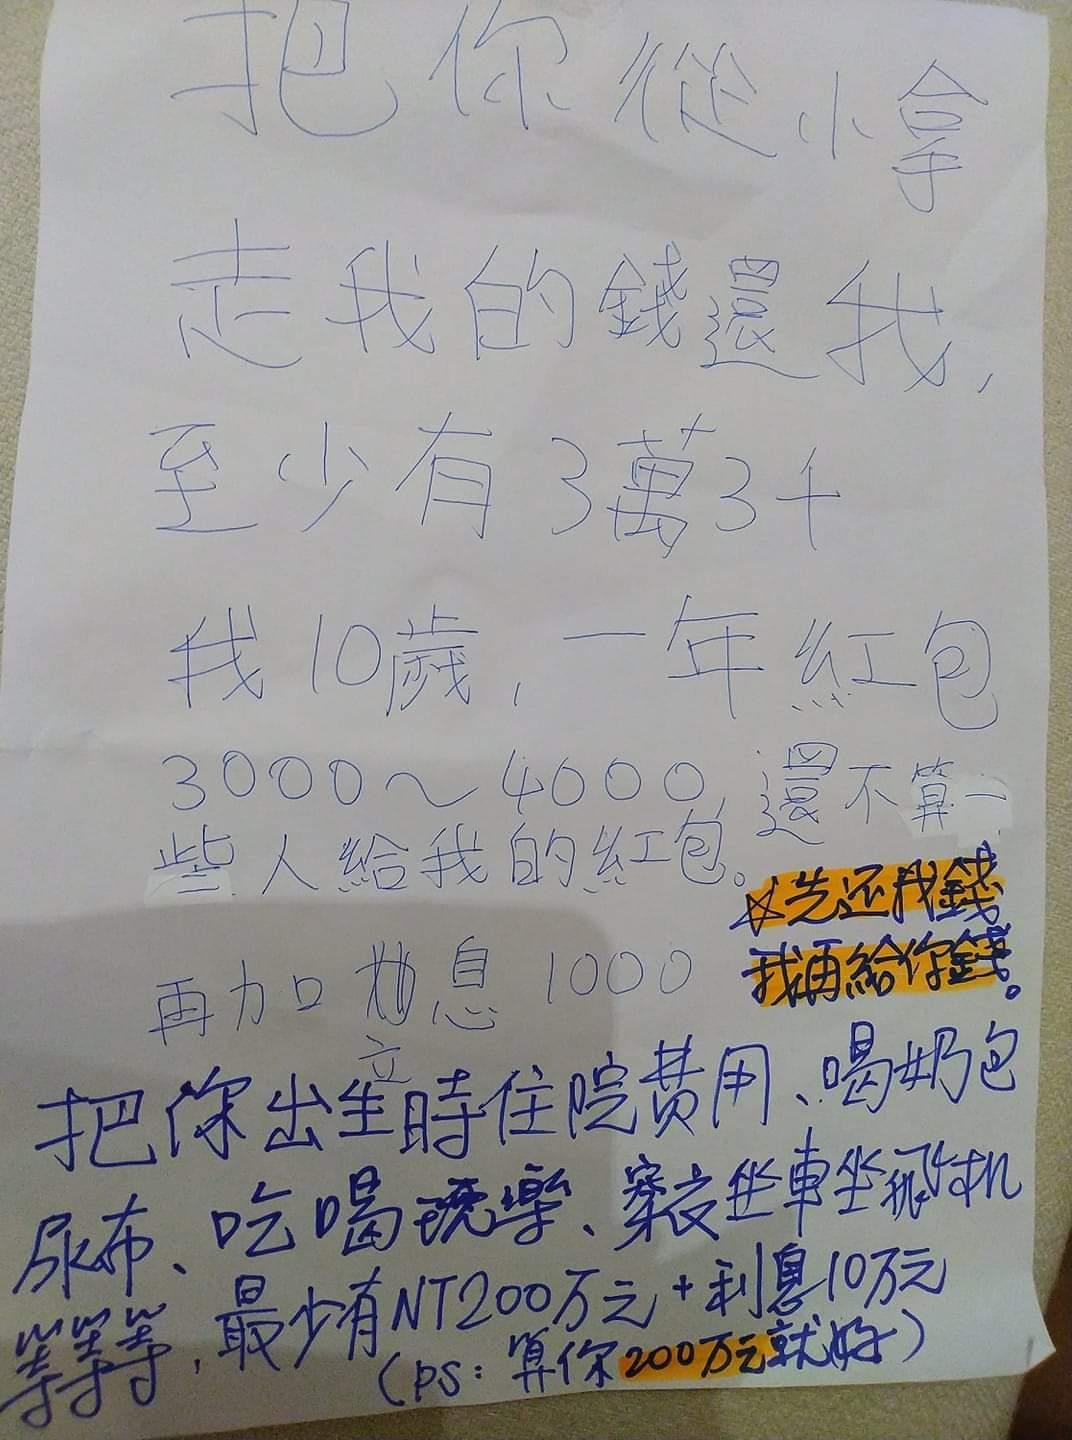 把你從小拿
走我的錢還我,
至少有3萬3千
我10歲,一年紅包
3000~4000,還不算一
些人給我的紅包。
☆先还我錢
我再給你錢。
再加 息1000
立
把你出生時住院费用、喝奶包
尿布、吃喝玩樂、穿衣坐車坐飛机
等等等,最少有NT200万元+利息10万元
(PS:算你200万元就好)